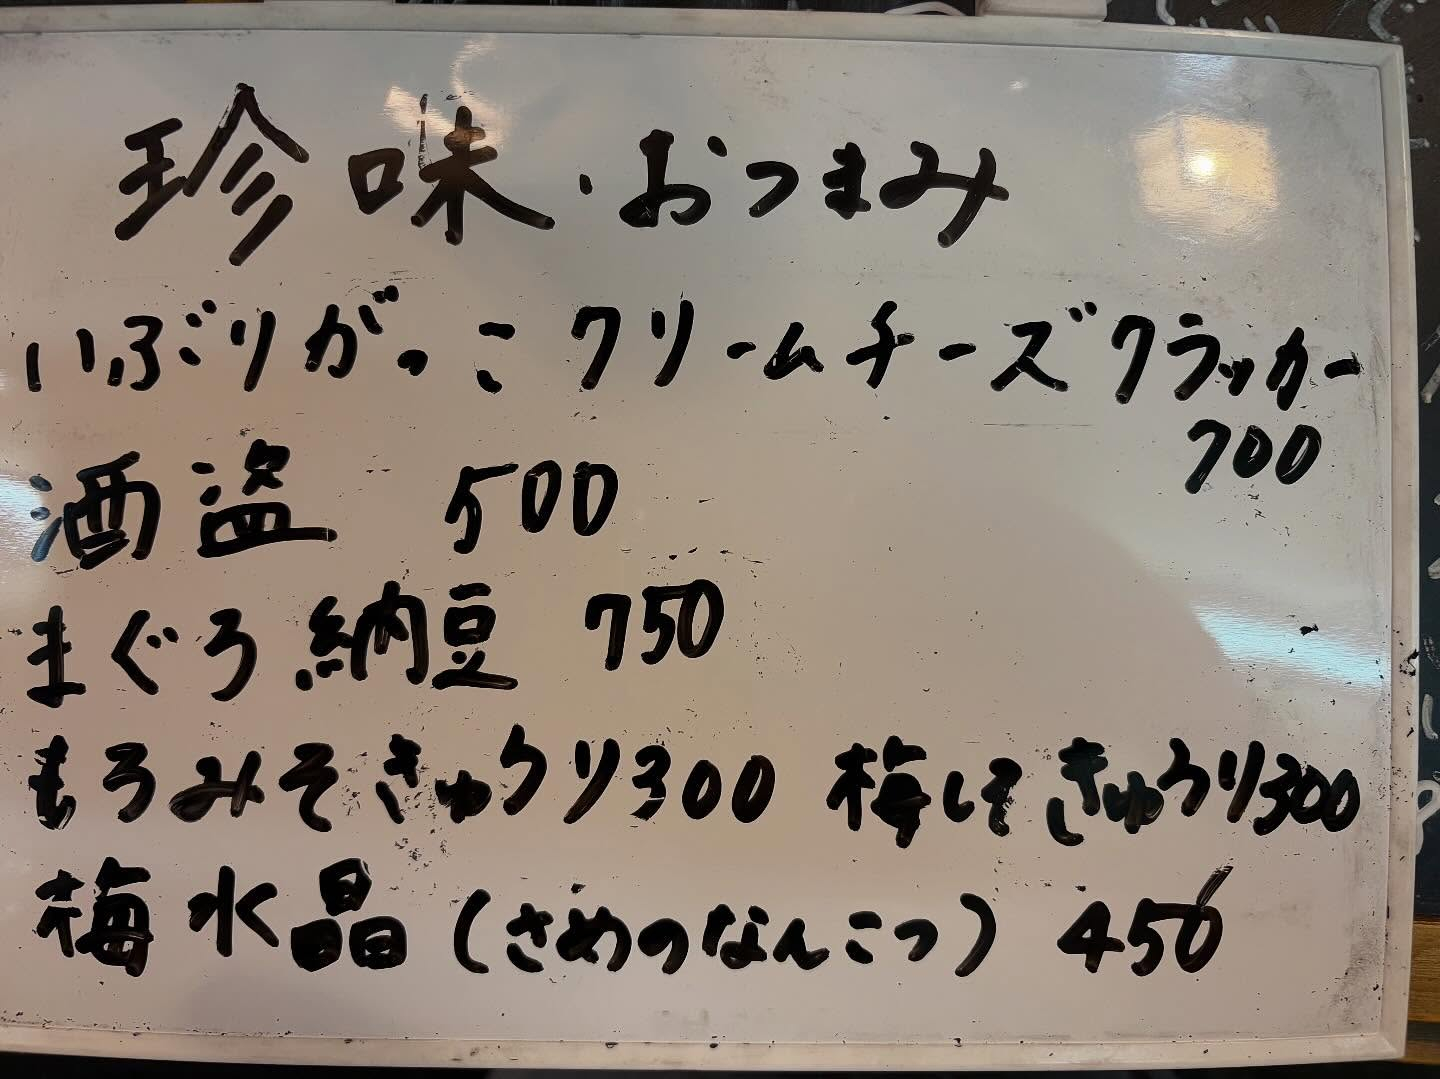 珍味・おつまみ
いぶりがっこクリームチーズクラッカー
700
酒盗 500
まぐろ納豆 750
もろみそきゅうり300 梅しそきゅうり300
梅水晶(さめのなんこつ) 450